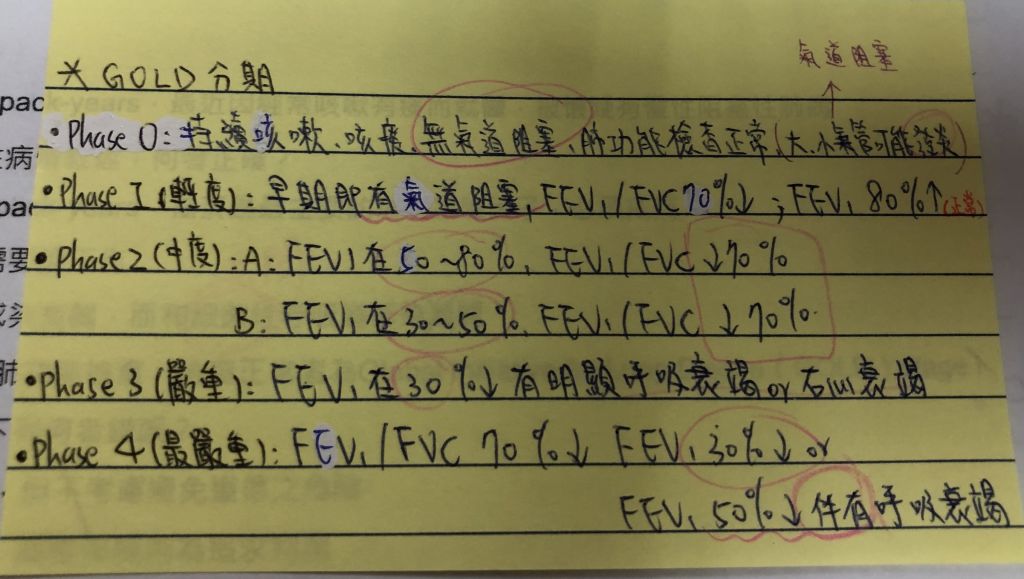 氣道阻塞
↑
* GOLD 分期
• Phase 0: 持續咳嗽、咳痰、無氣道阻塞、肺功能檢查正常(大、小氣管可能發炎)
• Phase I (輕度): 早期即有氣道阻塞, FEV₁/FVC 70%↓; FEV₁ 80%↑(正常)
• Phase 2 (中度): A: FEV₁在50~80%, FEV₁/FVC ↓70%
B: FEV₁在30~50%, FEV₁/FVC ↓70%.
• Phase 3 (嚴重): FEV₁在30%↓有明顯呼吸衰竭or右心衰竭
• Phase 4 (最嚴重): FEV₁/FVC 70%↓ FEV₁ 30%↓or
FEV₁ 50%↓伴有呼吸衰竭
pac
病
pa
需要
肺